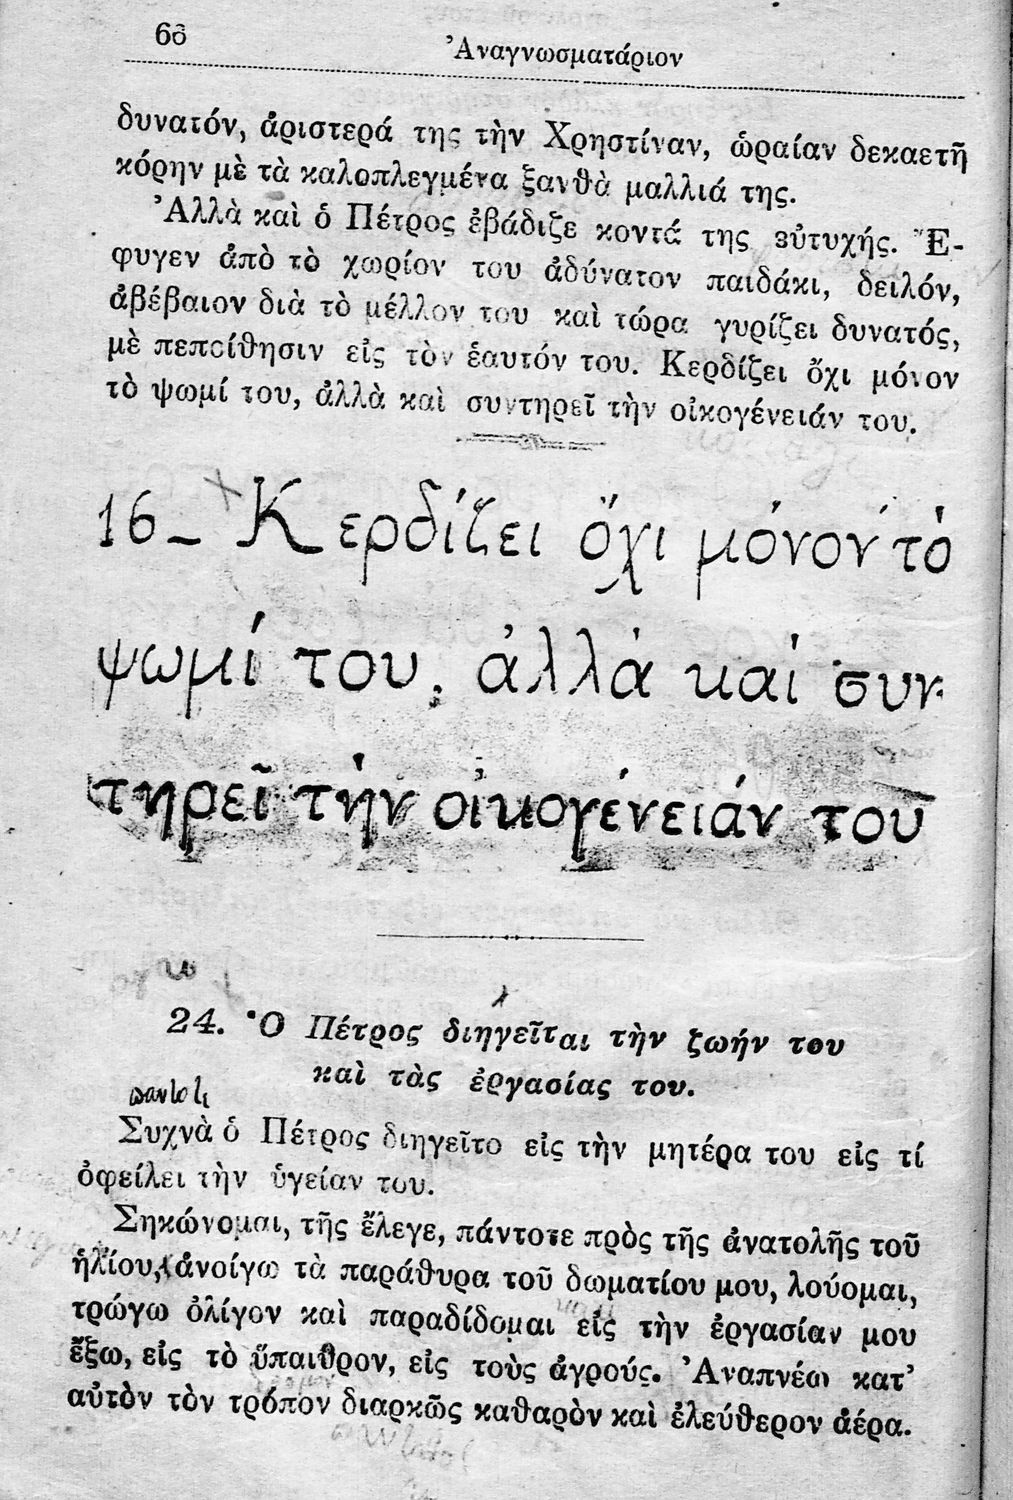 66
Ἀναγνωσματάριον
δυνατόν, ἀριστερά της τὴν Χρηστίναν, ὡραίαν δεκαετῆ
κόρην μὲ τὰ καλοπλεγμένα ξανθὰ μαλλιά της.
Ἀλλὰ καὶ ὁ Πέτρος ἐβάδιζε κοντά της εὐτυχής. Ἔ-
φυγεν ἀπὸ τὸ χωρίον του ἀδύνατον παιδάκι, δειλόν,
ἀβέβαιον διὰ τὸ μέλλον του καὶ τώρα γυρίζει δυνατός,
μὲ πεποίθησιν εἰς τὸν ἑαυτόν του. Κερδίζει ὄχι μόνον
τὸ ψωμί του, ἀλλὰ καὶ συντηρεῖ τὴν οἰκογένειάν του.
16- Κερδίζει ὄχι μόνον τὸ
ψωμί του, ἀλλὰ καὶ συν-
τηρεῖ τὴν οἰκογένειάν του
24. Ὁ Πέτρος διηγεῖται τὴν ζωήν του
καὶ τὰς ἐργασίας του.
Συχνὰ ὁ Πέτρος διηγεῖτο εἰς τὴν μητέρα του εἰς τί
ὀφείλει τὴν ὑγείαν του.
Σηκώνομαι, τῆς ἔλεγε, πάντοτε πρὸς τῆς ἀνατολῆς τοῦ
ἡλίου, ἀνοίγω τὰ παράθυρα τοῦ δωματίου μου, λούομαι,
τρώγω ὀλίγον καὶ παραδίδομαι εἰς τὴν ἐργασίαν μου
ἔξω, εἰς τὸ ὕπαιθρον, εἰς τοὺς ἀγρούς. Ἀναπνέω κατ'
αὐτὸν τὸν τρόπον διαρκῶς καθαρὸν καὶ ἐλεύθερον ἀέρα.